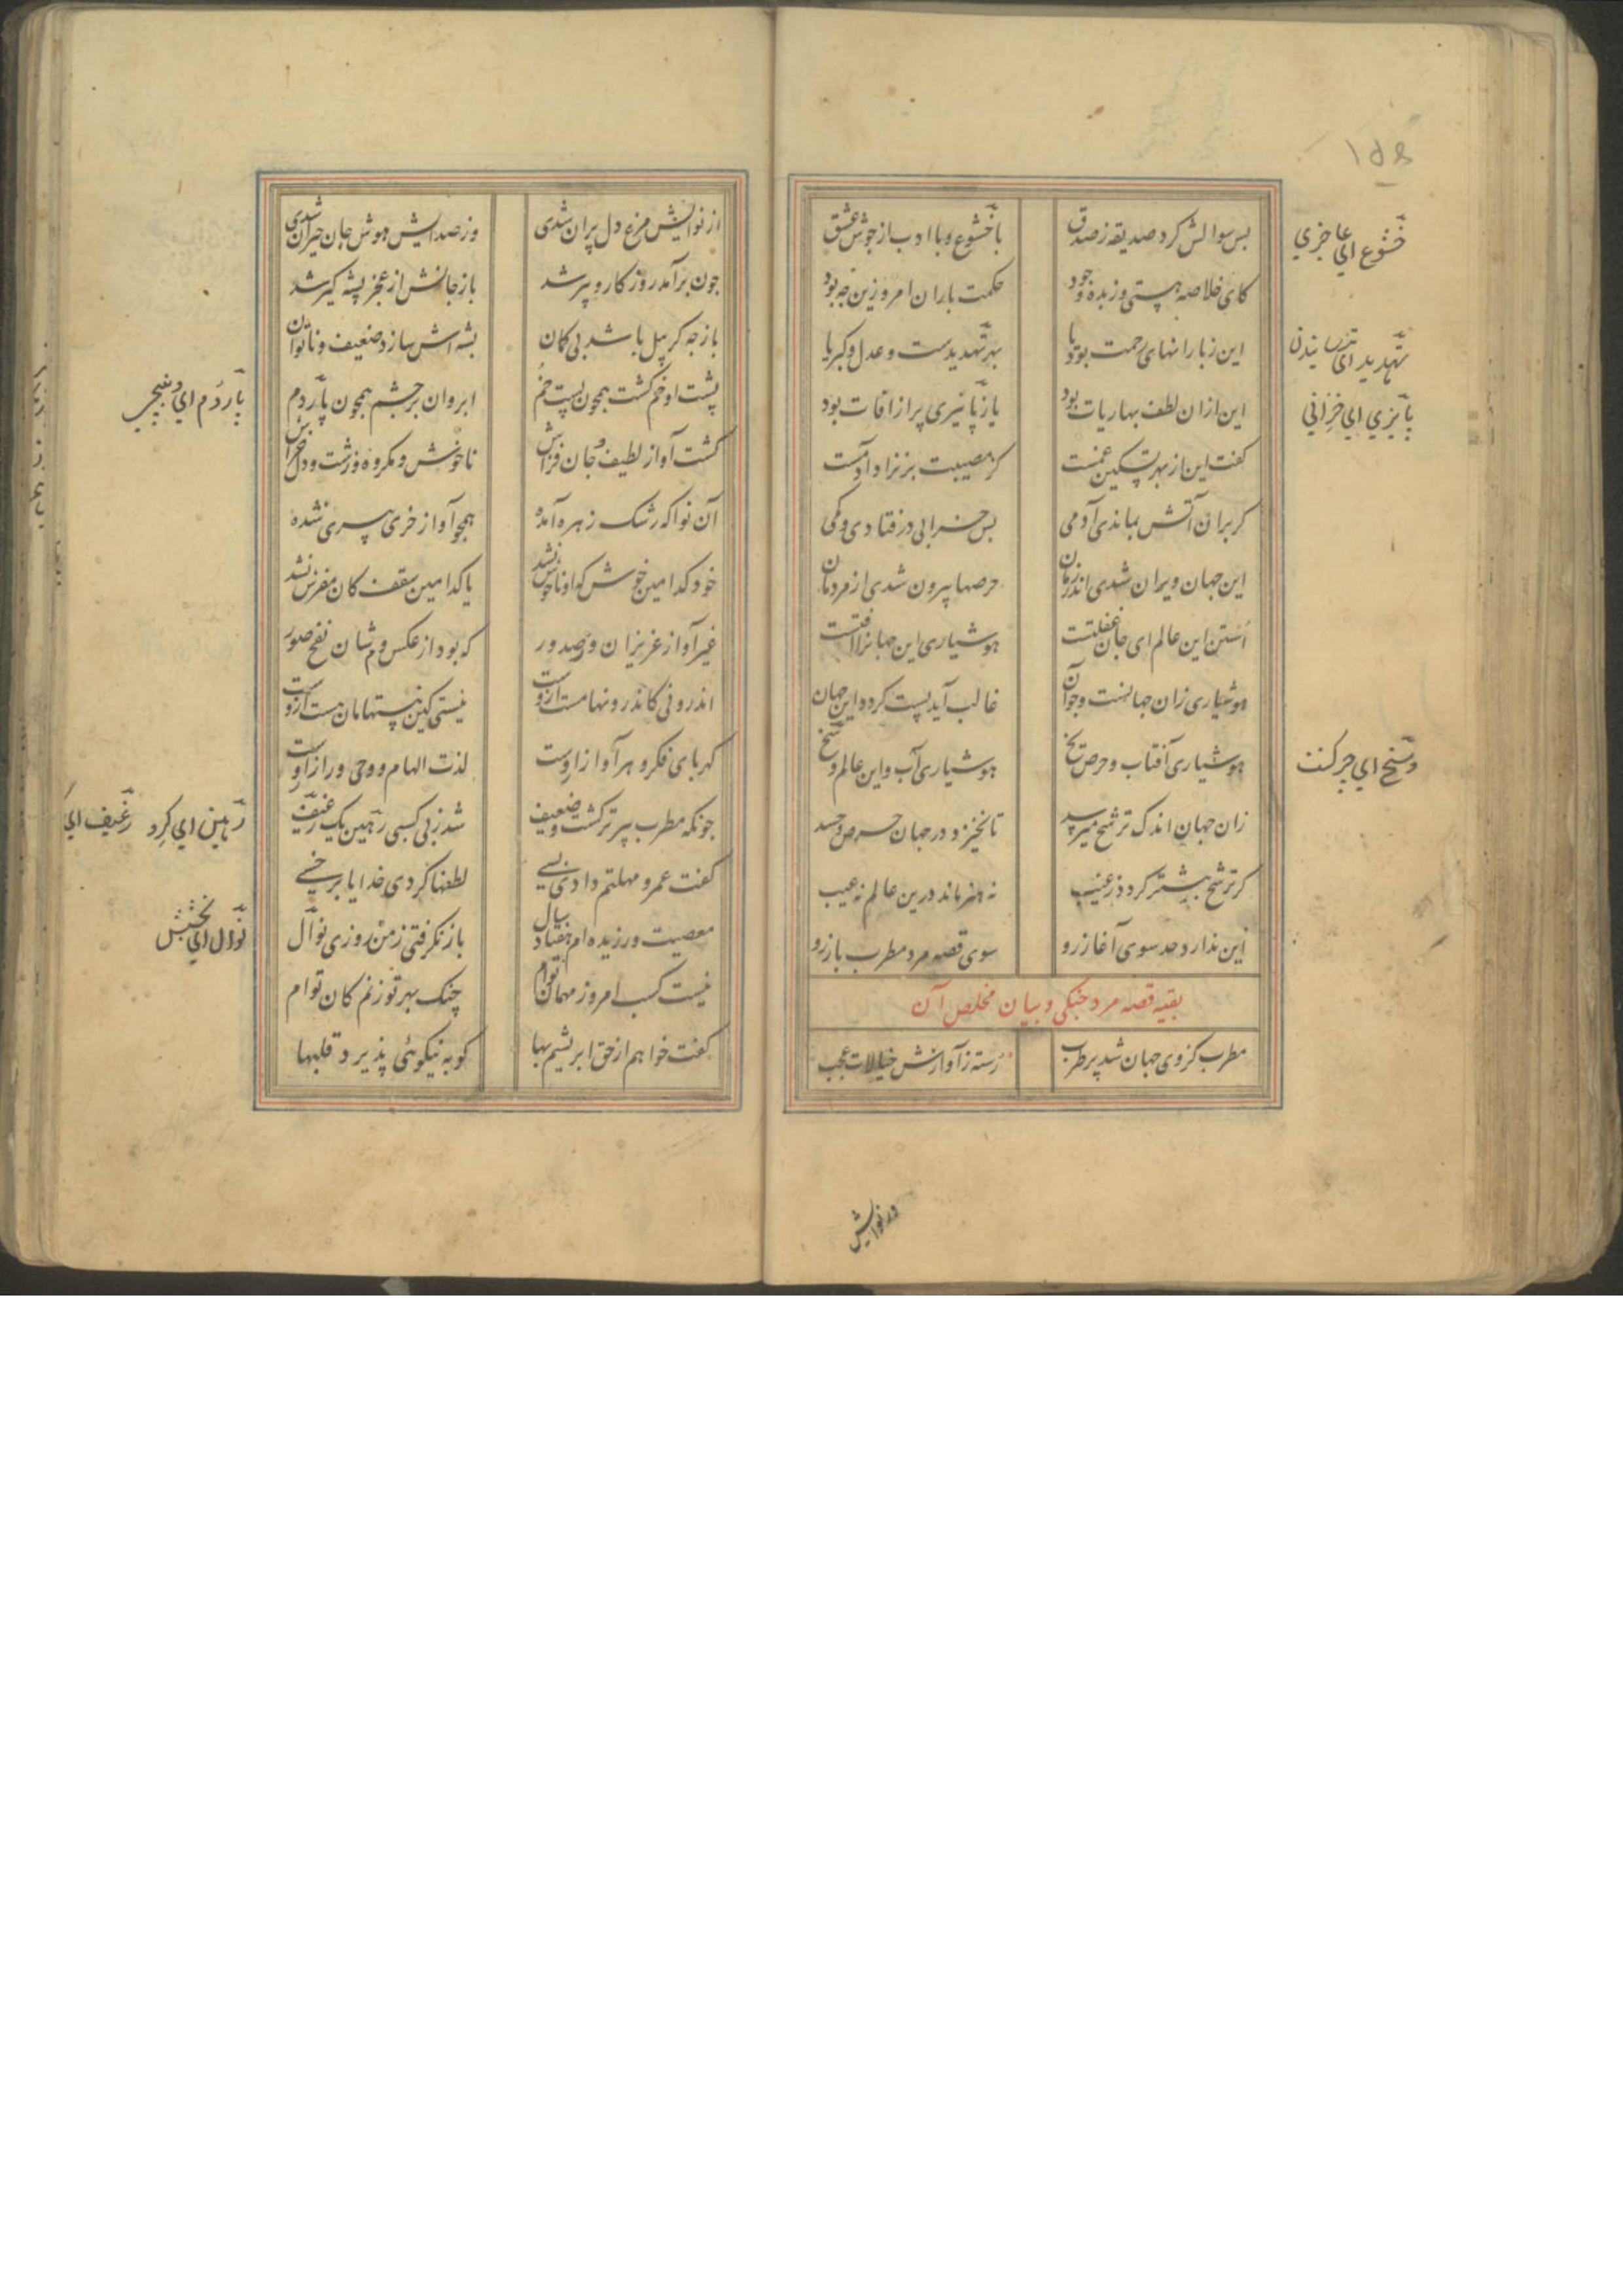 ۱۵۶
بس سوالش کرد صدیقه ز صدق با خشوع و با ادب از جوش عشق
خشوع ای عاجزی
کای خلاصه هستی و زبده وجود حکمت باران امروزین چه بود
این ز بارانهای رحمت بود یا بهر تهدیدست و عدل و کبریا
تهدید ای ترسانیدن
این ازان لطف بهاریات بود یا ز پائیزی پر از افات بود
پائیزی ای خزانی
کفت این از بهر تسکین غمست کز مصیبت بر نژاد ادمست
کر بران آتش بماندی آدمی بس خرابی در فتادی و کمی
این جهان ویران شدی اندر زمان حرصها بیرون شدی از مردمان
اُستن این عالم ای جان غفلتست هوشیاری این جهانرا افتست
هوشیاری زان جهانست و چو آن غالب آید پست کردد این جهان
هوشیاری آفتاب و حرص یخ هوشیاری آب و این عالم وسخ
وسخ ای چرکنت
زان جهان اندک ترشح میرسد تا نخیزد در جهان حرص و حسد
کر ترشح بیشتر کردد ز غیب نه هنر ماند درین عالم نه عیب
این ندارد حد سوی آغاز رو سوی قصه مرد مطرب باز رو
بقیه قصه مرد جنکی و بیان مخلص آن
مطرب کز وی جهان شد پر طرب رسته ز آوازش خیالات عجب
از نوایش
از نوایش مرغ دل پران شدی وز صدایش هوش جان حیران شدی
چون برآمد روزکار و پیر شد باز جانش از عجز پشه کیر شد
باز چه کر پیل باشد بی کمان پشه اش سازد ضعیف و ناتوان
پشت او خم کشت همچون پست خُم ابروان بر چشم همچون پاردم
پاردُم ای دمچی
کشت آواز لطیف و جان فزاش ناخوش و مکروه و زشت و دلخراش
آن نوا که رشک زهره آمده همچو آواز خری پیری شده
خود کدامین خوش که او ناخوش نشد یا کدامین سقف کان مفرش نشد
غیر آواز عزیزان در صدور که بود از عکس دم شان نفخ صور
اندرونی کاندرونها مست ازوست نیستی کین هستهامان هست ازوست
کهربای فکر و هر آواز اوست لذت الهام و وحی و راز اوست
چونکه مطرب پیرتر کشت و ضعیف شد ز بی کسبی رهین یک رغیف
رهین ای کرو رغیف ای
کفت عمر و مهلتم دادی بسی لطفها کردی خدایا بر خسی
معصیت ورزیده ام هفتاد سال باز نکرفتی ز من روزی نوال
نوال ای بخشش
نیست کسب امروز مهمان توام چنک بهر تو زنم کان توام
کفت خواهم از حق ابریشم بها کو به نیکوئی پذیرد قلبها